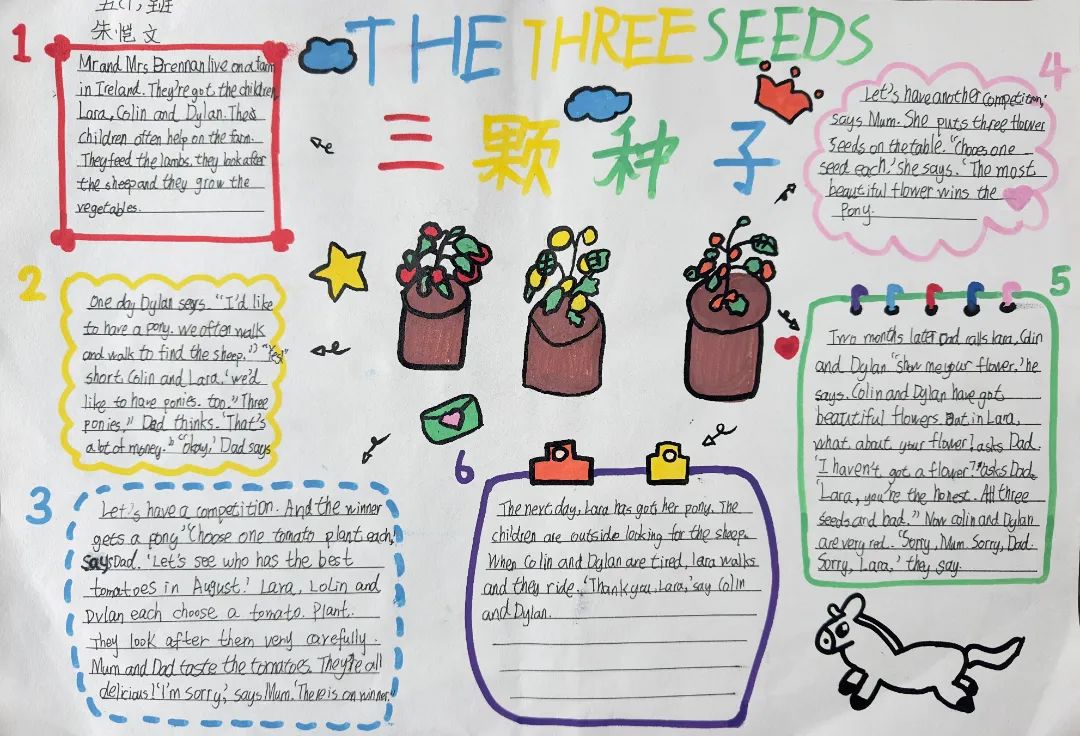 五(1)班
朱恺文
THE THREE SEEDS
三颗种子
1
Mr and Mrs Brennan live on a farm
in Ireland. They're got the children,
Lara, Colin and Dylan. Thes
children often help on the farm.
They feed the lambs, they look after
the sheep and they grow the
vegetables.
2
One day Dylan says. "I'd like
to have a pony. we often walk
and walk to find the sheep." "Yes!"
short Colin and Lara, 'we'd
like to have ponies. too." Three
ponies," Dad thinks. 'That's
a lot of money." "okay,' Dad says
3
Let's have a competition. And the winner
gets a pony' 'Choose one tomato plant each,'
says Dad. 'Let's see who has the best
tomatoes in August.' Lara, Lolin and
Dylan each choose a tomato. Plant.
They look after them very carefully.
Mum and Dad taste the tomatoes. They're all
delicious! 'I'm sorry,' says Mum. 'There is on winner."
4
Let's have another competition,'
says Mum. She puts three flower
seeds on the table. "Choes one
seed each,' she says. 'The most
beautiful flower wins the
Pony.
5
Two months later Dad calls lara, Colin
and Dylan 'show me your flower,' he
says. Colin and Dylan have got
beautiful flowers. But in Lara,
what about your flower? asks Dad.
'I haven't got a flower?' asks Dad.
'Lara, you're the honest. All three
seeds and bad." Now colin and Dylan
are very red. 'Sorry, Mum. Sorry, Dad.
Sorry, Lara,' they say.
6
The next day, Lara has got her pony. The
children are outside looking for the sheep.
When Colin and Dylan are tired, lara walks
and they ride. 'Thank you, Lara,' say Colin
and Dylan.